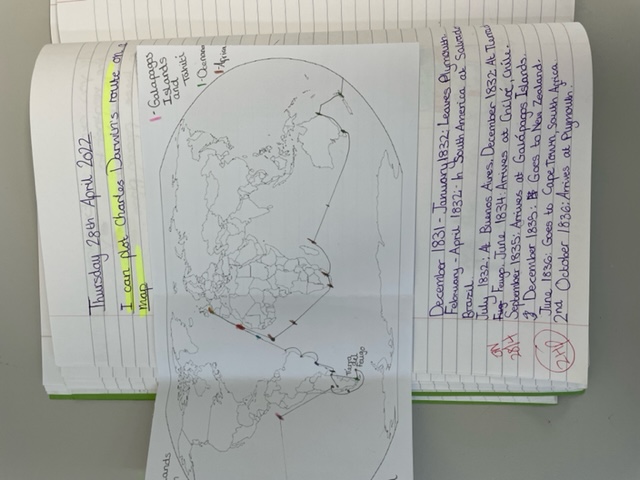 Thursday 28th April 2022
I can plot Charles Darwin's route on a
map
1- Galapagos
Islands
and
Tahiti
1- Oceania
1- Africa
Tierra
del
Fuego
ands
December 1831 - January 1832: Leaves Plymouth.
February - April 1832: In South America at Salvador
Brazil
July 1832: At Buenos Aires. December 1832: At Tierra
Fuego. June 1834: Arrives at Chiloé, Chile.
September 1835: Arrives at Galápagos Islands.
December 1835: Goes to New Zealand.
June 1836: Goes to Cape Town, South Africa
2nd October 1836: Arrives at Plymouth.
28/4
2HP